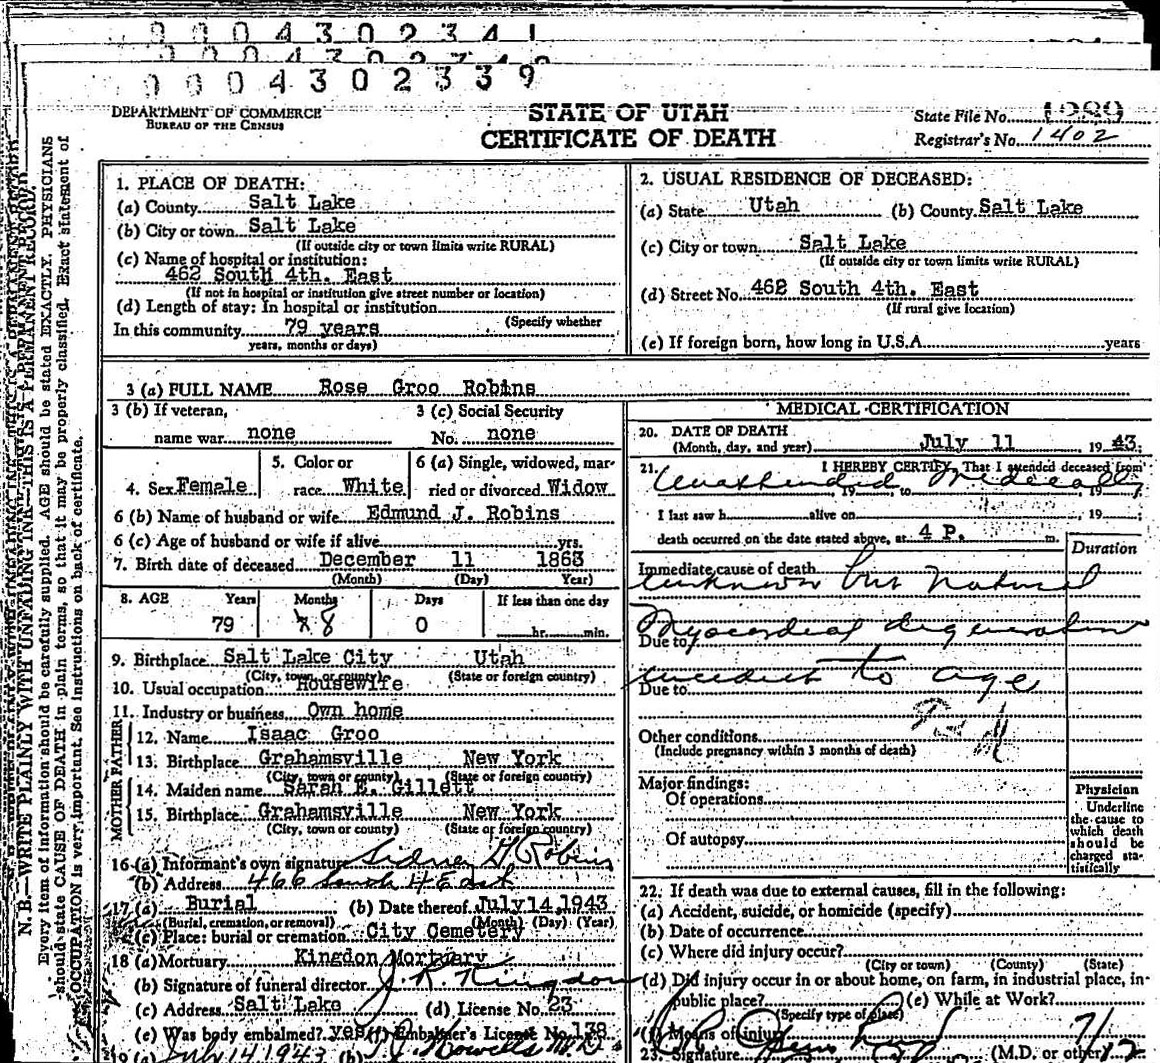 0 0 0 4 3 0 2 3 4 1
0 0 0 4 3 0 2 3 3 9
DEPARTMENT OF COMMERCE
BUREAU OF THE CENSUS
STATE OF UTAH
CERTIFICATE OF DEATH
State File No.
Registrar's No. 1402
N. B.—WRITE PLAINLY WITH UNFADING INK—THIS IS A PERMANENT RECORD.
Every item of information should be carefully supplied. AGE should be stated EXACTLY. PHYSICIANS
should state CAUSE OF DEATH in plain terms, so that it may be properly classified. Exact statement of
OCCUPATION is very important. See instructions on back of certificate.
1. PLACE OF DEATH:
(a) County Salt Lake
(b) City or town Salt Lake
(If outside city or town limits write RURAL)
(c) Name of hospital or institution:
462 South 4th. East
(If not in hospital or institution give street number or location)
(d) Length of stay: In hospital or institution
(Specify whether
In this community 79 years
years, months or days)
2. USUAL RESIDENCE OF DECEASED:
(a) State Utah (b) County Salt Lake
(c) City or town Salt Lake
(If outside city or town limits write RURAL)
(d) Street No. 462 South 4th. East
(If rural give location)
(e) If foreign born, how long in U.S.A. years
3 (a) FULL NAME Rose Groo Robins
3 (b) If veteran,
name war none
3 (c) Social Security
No. none
4. Sex Female
5. Color or
race White
6 (a) Single, widowed, mar-
ried or divorced Widow
6 (b) Name of husband or wife Edmund J. Robins
6 (c) Age of husband or wife if alive yrs.
7. Birth date of deceased December 11 1863
(Month) (Day) Year)
8. AGE Years Months Days If less than one day
79 8 0 hr. min.
9. Birthplace Salt Lake City Utah
(City, town, or county) (State or foreign country)
10. Usual occupation Housewife
11. Industry or business Own home
FATHER
12. Name Isaac Groo
13. Birthplace Grahamsville New York
(City, town or county) (State or foreign country)
MOTHER
14. Maiden name Sarah E. Gillett
15. Birthplace Grahamsville New York
(City, town or county) (State or foreign country)
16 (a) Informant's own signature Sidney G Robins
(b) Address 466 South 4 East
17 (a) Burial (b) Date thereof July 14, 1943
(Burial, cremation, or removal) (Month) (Day) (Year)
(c) Place: burial or cremation City Cemetery
18 (a) Mortuary Kingdon Mortuary
(b) Signature of funeral director J. R. Kingdon
(c) Address Salt Lake (d) License No. 23
(e) Was body embalmed? yes (f) Embalmer's License No. 138
19 (a) July 14 1943 (b)
MEDICAL CERTIFICATION
20. DATE OF DEATH
(Month, day, and year) July 11 1943;
21. I HEREBY CERTIFY, That I attended deceased from
Unattended Medically
, 19 , to , 19 ;
I last saw h alive on , 19 ;
death occurred on the date stated above, at 4 P. m.
Duration
Immediate cause of death
unknown but natural
Myocardial degeneration
Due to
incident to age
Due to
Other conditions
(Include pregnancy within 3 months of death)
Major findings:
Of operations
Of autopsy
Physician
Underline
the cause to
which death
should be
charged sta-
tistically
22. If death was due to external causes, fill in the following:
(a) Accident, suicide, or homicide (specify)
(b) Date of occurrence
(c) Where did injury occur?
(City or town) (County) (State)
(d) Did injury occur in or about home, on farm, in industrial place, in
public place? (e) While at Work?
(Specify type of place)
(f) Means of injury
23. Signature (M.D. or other)